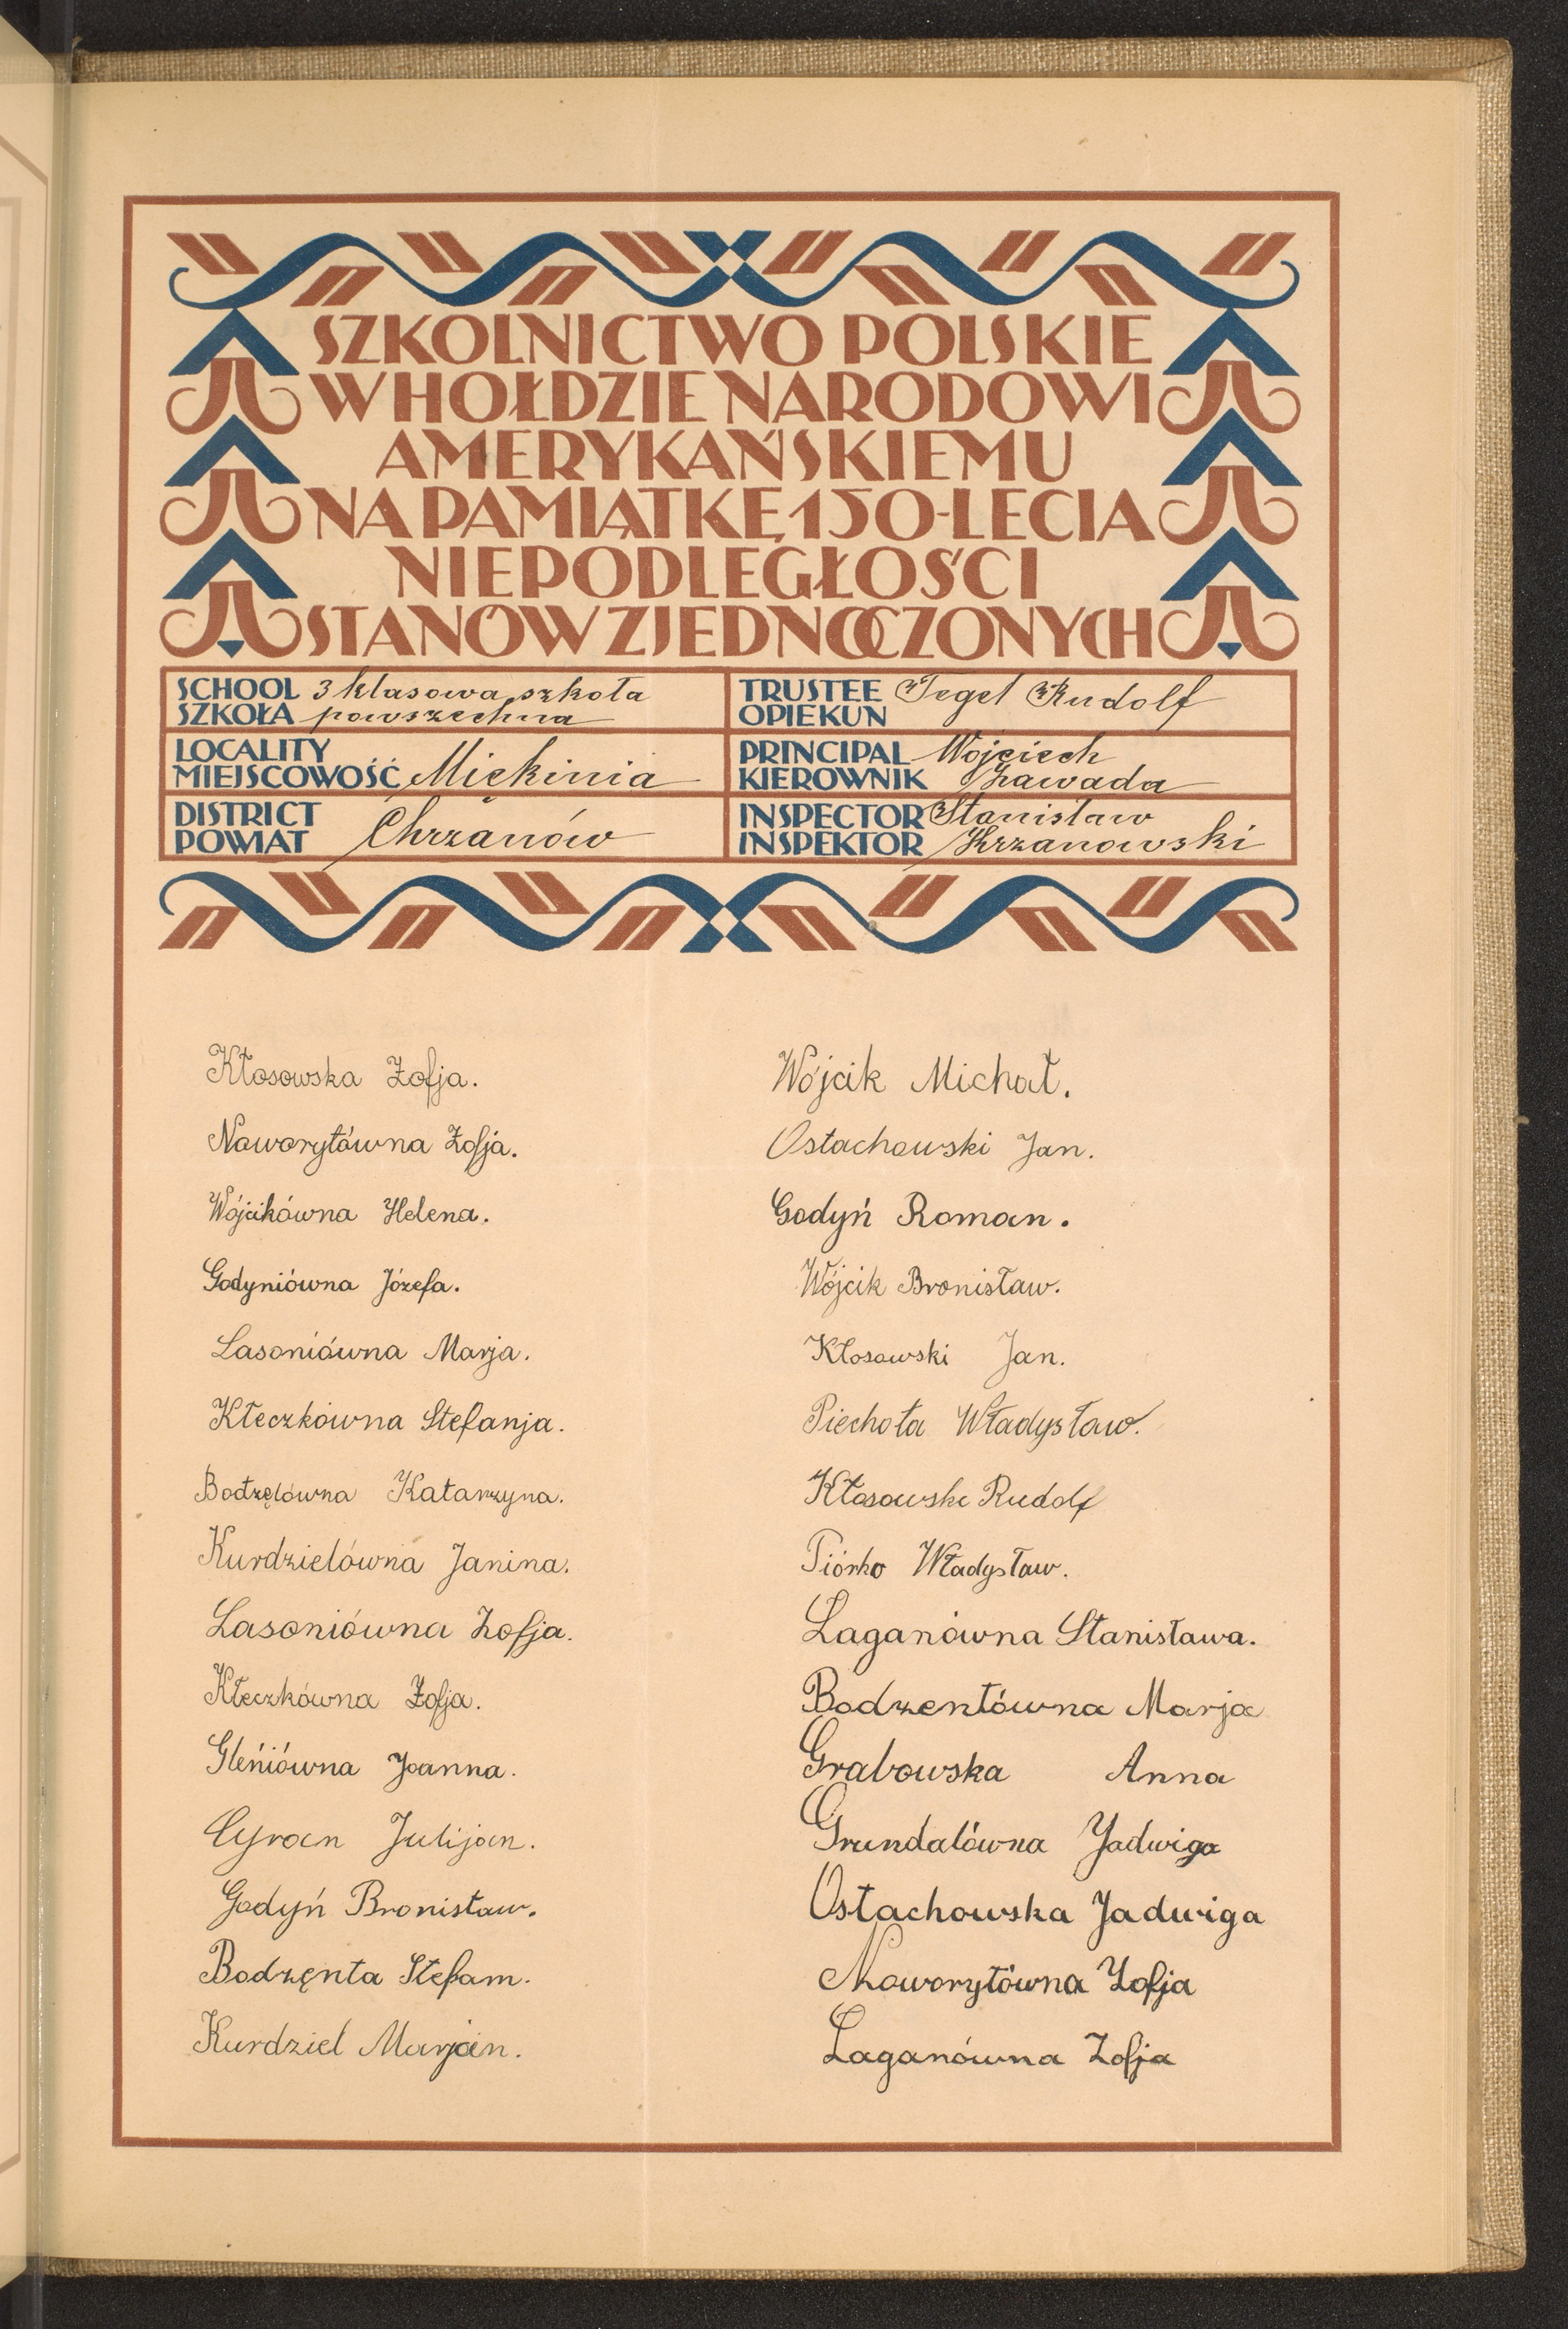 SZKOLNICTWO POLSKIE
W HOŁDZIE NARODOWI
AMERYKAŃSKIEMU
NA PAMIĄTKĘ 150-LECIA
NIEPODLEGŁOŚCI
STANÓW ZJEDNOCZONYCH
SCHOOL 3 klasowa szkoła
SZKOŁA powszechna
TRUSTEE Tegel Rudolf
OPIEKUN
LOCALITY
MIEJSCOWOŚĆ Miękinia
PRINCIPAL Wojciech
KIEROWNIK Zawada
DISTRICT
POWIAT Chrzanów
INSPECTOR Stanisław
INSPEKTOR Krzanowski
Kłosowska Zofja.
Noworytówna Zofja.
Wójcikówna Helena.
Godyniówna Józefa.
Lasoniówna Marja.
Kłeczkówna Stefanja.
Bodzęlówna Katarzyna.
Kurdzielówna Janina.
Lasoniówna Zofja.
Kłeczkówna Zofja.
Gleńiówna Joanna.
Cyran Julijan.
Godyń Bronisław.
Bodzęnta Stefam.
Kurdziel Marjan.
Wójcik Michał.
Ostachowski Jan.
Godyń Roman.
Wójcik Bronisław.
Kłosowski Jan.
Piechota Władysław.
Kłosowski Rudolf
Piórko Władysław.
Laganówna Stanisława.
Bodzentówna Marja
Grabowska Anna
Grundalówna Jadwiga
Ostachowska Jadwiga
Noworytówna Zofja
Laganówna Zofja